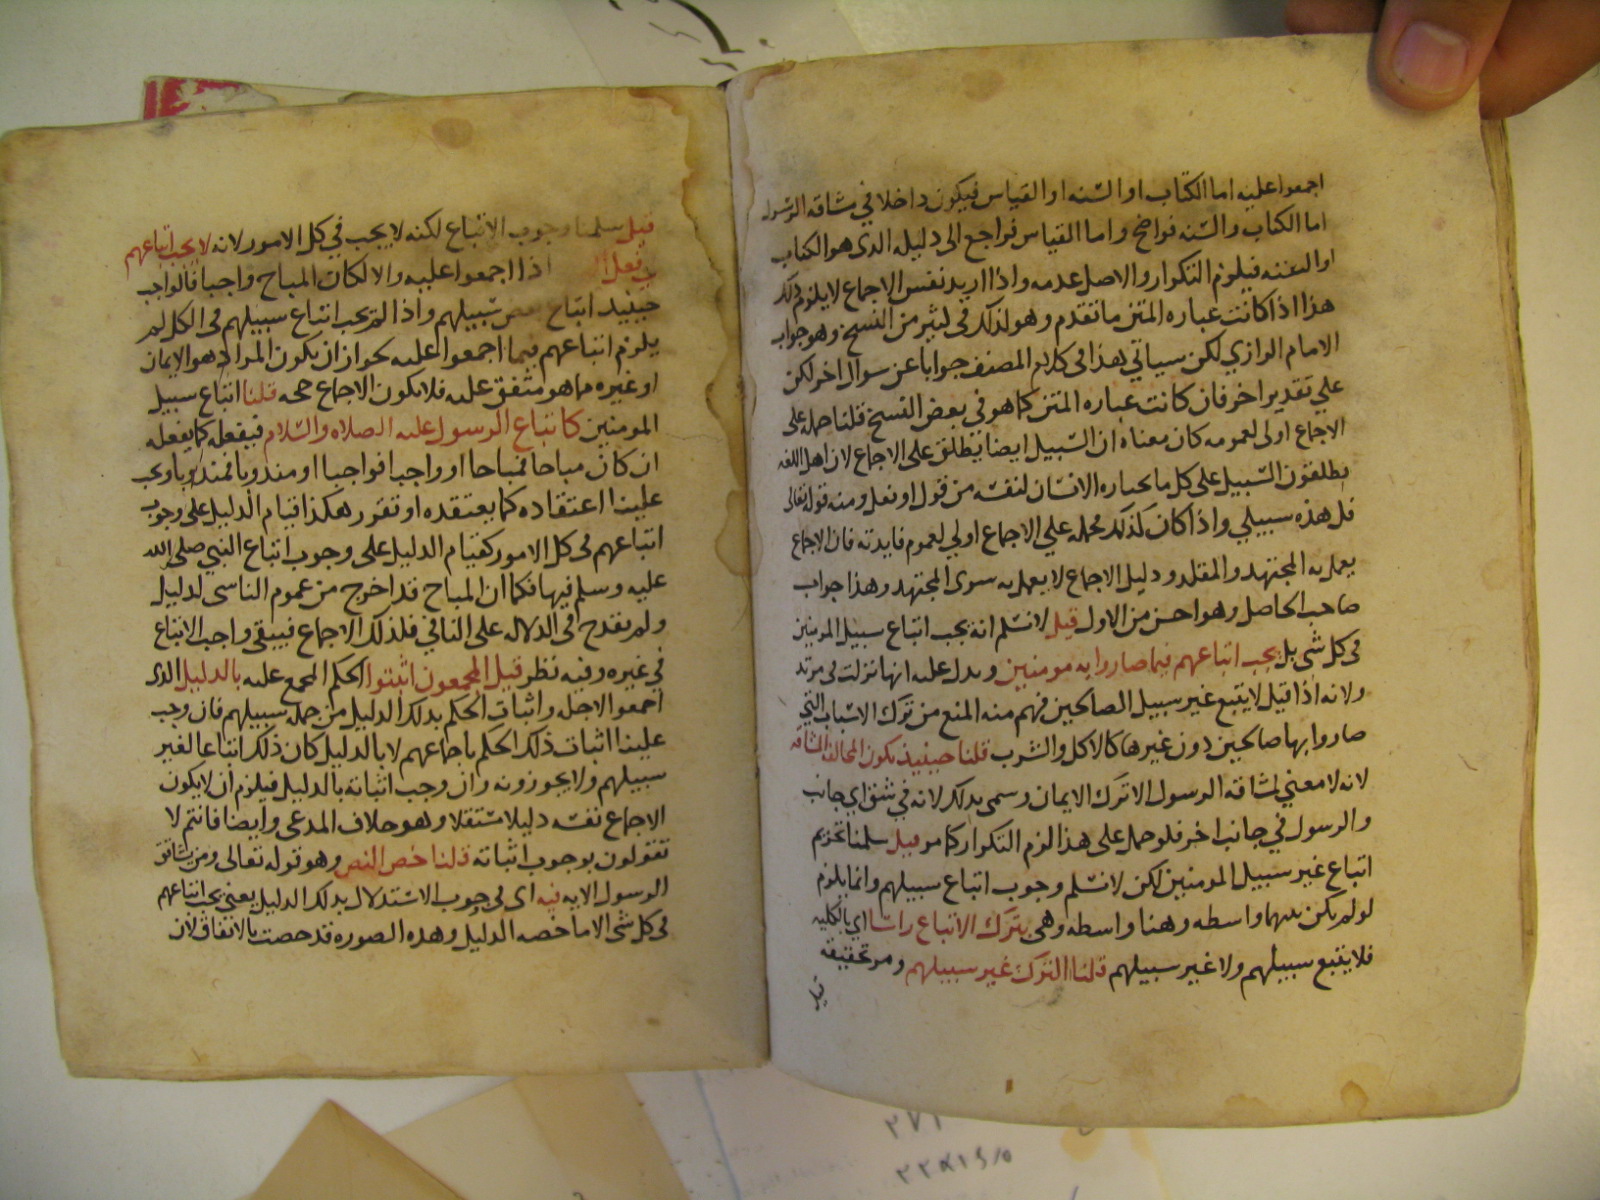 اجمعوا عليه اما الكتاب او السنه او القياس فيكون داخلا في مشاقه الرسول
اما الكتاب والسنه فواضح واما القياس فراجع الى دليله الذى هو الكتاب
او السنه فيلزم التكرار والاصل عدمه واذا اريد نفس الاجماع لا يلزم ذلك
هذا اذا كانت عباره المتن ما تقدم وهو كذلك في كثير من النسخ وهو جواب
الامام الرازي لكن سياتي هذا في كلام المصنف جوابا عن سوال اخر لكن
علي تقدير اخر فان كانت عباره المتن كما هو في بعض النسخ قلنا حمله على
الاجماع اولى لعمومه كان معناه ان السبيل ايضا يطلق على الاجماع لان اهل اللغه
يطلقون السبيل على كل ما يختاره الانسان لنفسه من قول او فعل ومنه قوله تعالى
قل هذه سبيلي واذا كان كذلك فحمله علي الاجماع اولي لعموم فايدته فان الاجماع
يعمل به المجتهد والمقلد ودليل الاجماع لا يعمل به سوى المجتهد وهذا جواب
صاحب الحاصل وهو احسن من الاول قيل لا نسلم انه يجب اتباع سبيل المومنين
في كل شى بل يجب اتباعهم فيما صاروا به مومنين ويدل عليه انها نزلت في مرتد
ولانه اذا قيل لا يتبع غير سبيل الصالحين فهم منه المنع من ترك الاسباب التي
صاروا بها صالحين دون غيرها كالاكل والشرب قلنا حينيذ تكون المخالفه المشاقه
لانه لا معني لمشاقه الرسول الا ترك الايمان وسمى بذلك لانه في شق اي جانب
والرسول في جانب اخر فلو حمل على هذا لزم التكرار كما مر قيل سلمنا تحريم
اتباع غير سبيل المومنين لكن لا نسلم وجوب اتباع سبيلهم وانما يلزم
لو لم يكن بينهما واسطه وهنا واسطه وهى ترك الاتباع راسا اي بالكليه
فلا يتبع سبيلهم ولا غير سبيلهم قلنا الترك غير سبيلهم ومر تحقيقه
قيل
قيل سلمنا وجوب الاتباع لكنه لا يجب في كل الامور لانه لا يجب اتباعهم
في فعل اذا اجمعوا عليه والا لكان المباح واجبا فالواجب
حينيذ اتباع بعض سبيلهم واذا لم يجب اتباع سبيلهم فى الكل لم
يلزم اتباعهم فيما اجمعوا عليه لجواز ان يكون المراد هو الايمان
او غيره مما هو متفق عليه فلا يكون الاجماع حجه قلنا اتباع سبيل
المومنين كاتباع الرسول عليه الصلاه والسلام فيفعله كما يفعله
ان كان مباحا فمباحا او واجبا فواجبا او مندوبا فمندوبا ويجب
علينا اعتقاده كما يعتقده او تقرر هكذا قيام الدليل على وجوب
اتباعهم في كل الامور كقيام الدليل على وجوب اتباع النبي صلى الله
عليه وسلم فيها فكما ان المباح قد اخرج من عموم الناسى لدليل
ولم يقدح في الدلاله على الباقي فلذلك الاجماع فيبقى واجب الاتباع
في غيره وفيه نظر قيل المجمعون اثبتوا الحكم المجمع عليه بالدليل الذى
اجمعوا لاجله واثبات الحكم بذلك الدليل من جمله سبيلهم فان وجب
علينا اثبات ذلك الحكم باجماعهم لا بالدليل كان ذلك اتباعا لغير
سبيلهم ولا يجوزونه وان وجب اثباته بالدليل فيلزم ان لا يكون
الاجماع نفسه دليلا مستقلا وهو خلاف المدعى وايضا فانتم لا
تقولون بوجوب اثباته قلنا خص النص وهو قوله تعالى ومن يشاقق
الرسول الايه فيه اى في وجوب الاستدلال بذلك الدليل يعنى يجب اتباعهم
في كل شى الا ما خصه الدليل وهذه الصوره قد خصت بالاتفاق لان